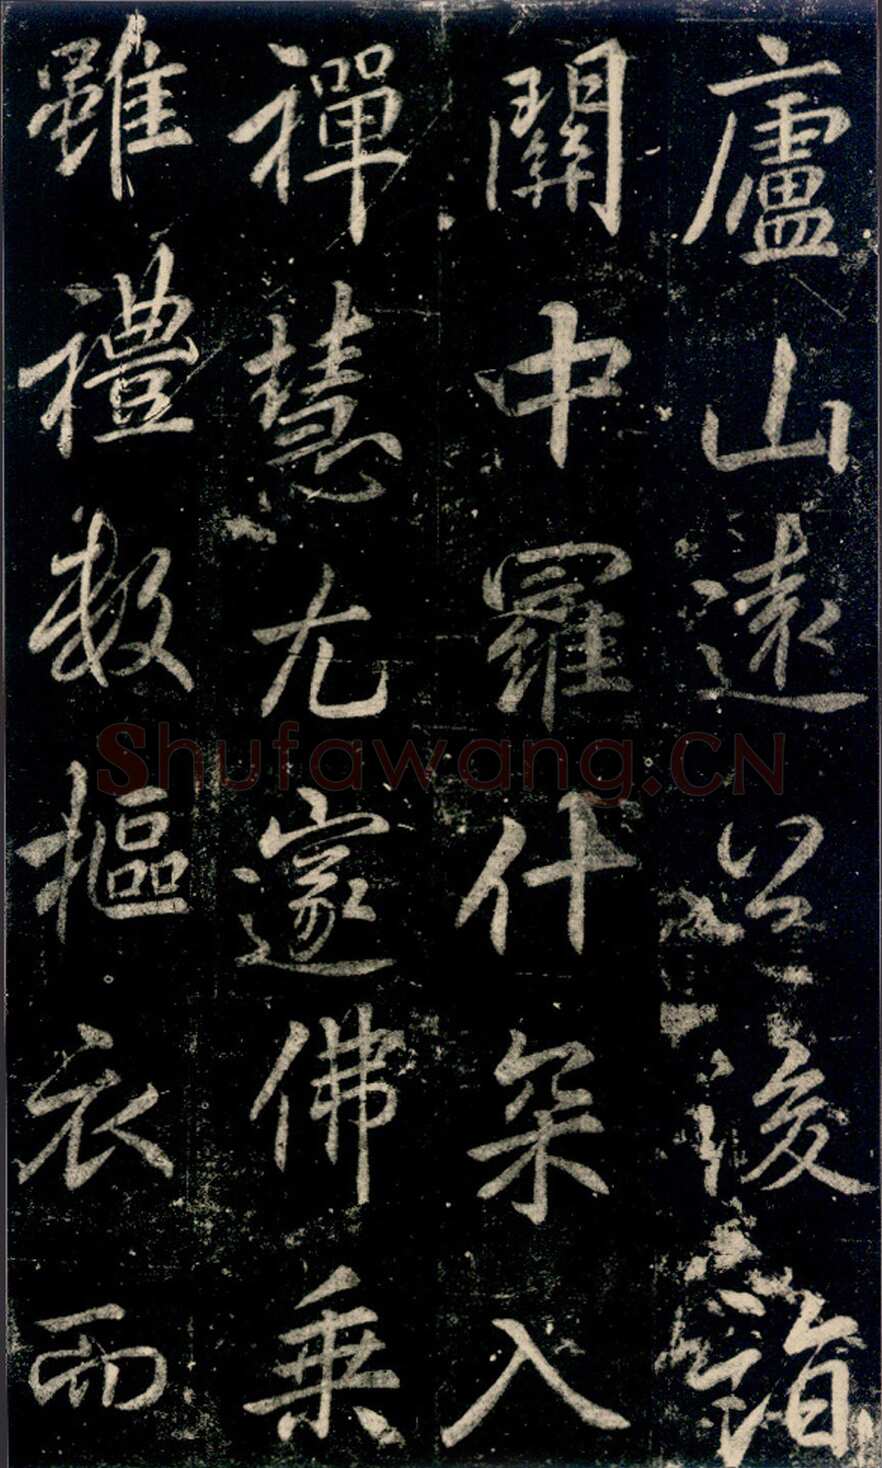 廬山遠公後詣
關中羅什罙入
禪慧尤邃佛乘
雖禮數摳衣而
Shufawang.CN